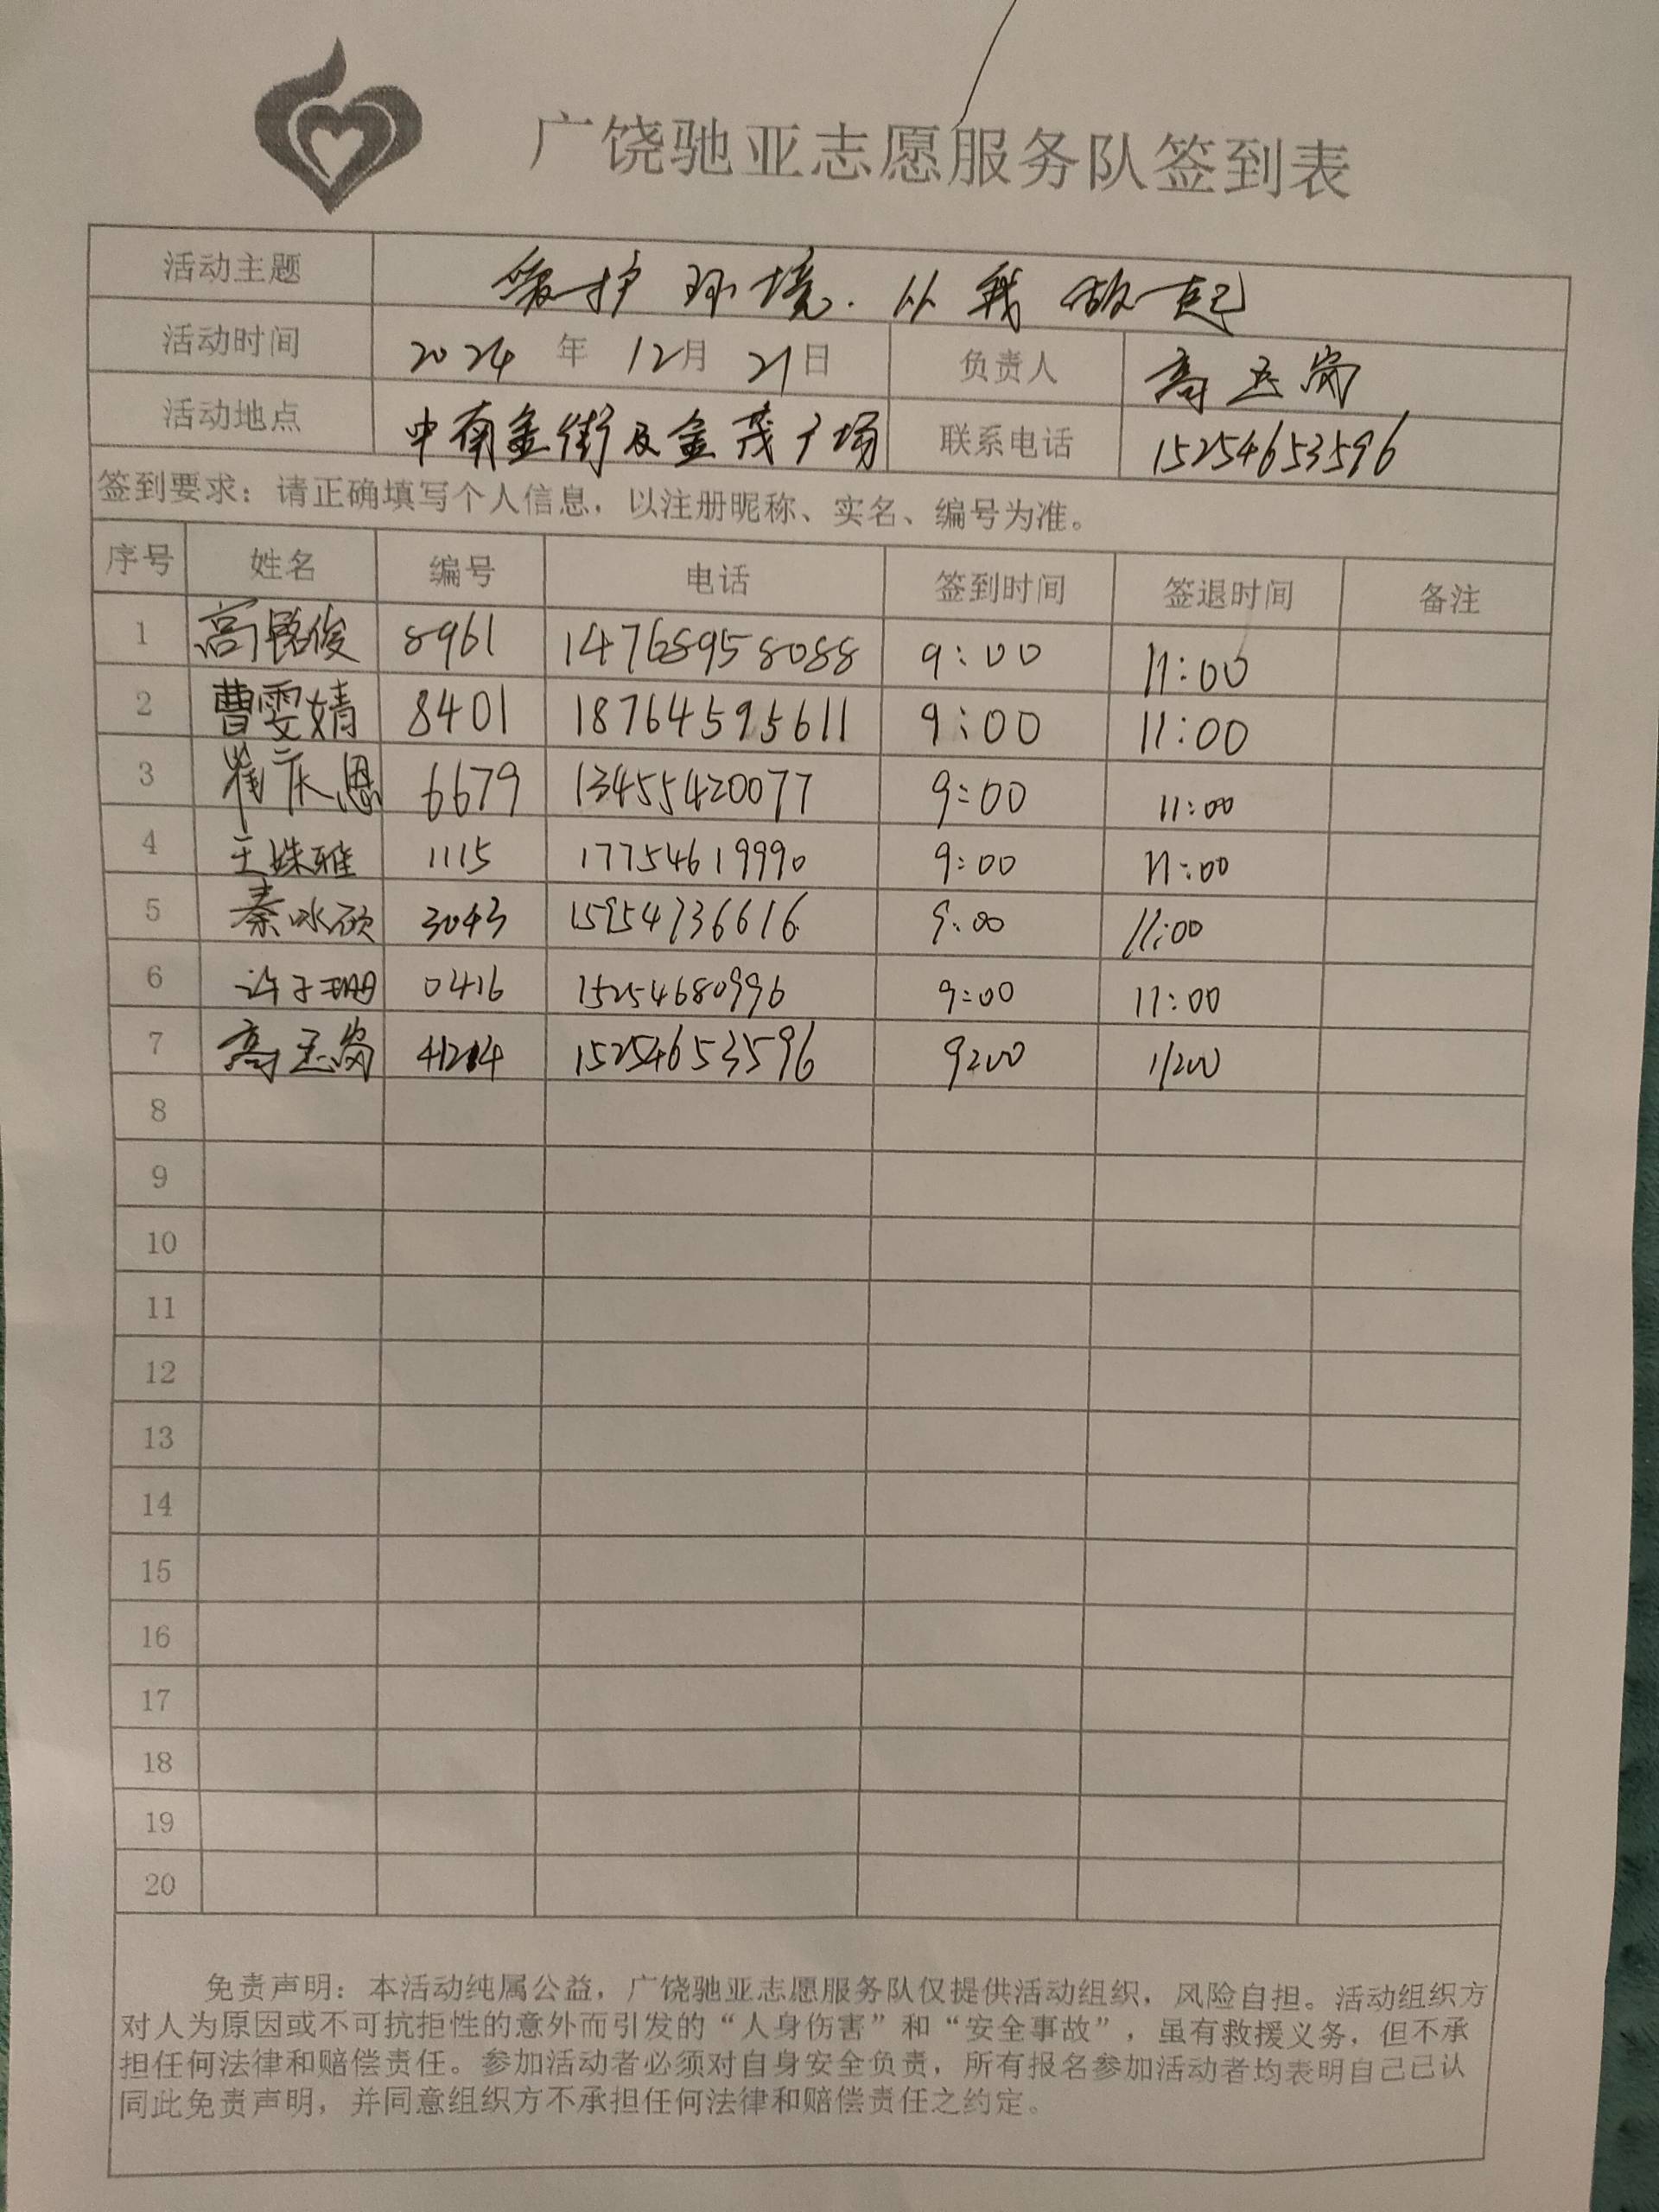 广饶驰亚志愿服务队签到表
活动主题 爱护环境.从我做起
活动时间 2024年12月21日 负责人 高玉岗
活动地点 中南金街及金茂广场 联系电话 15254653596
签到要求：请正确填写个人信息，以注册昵称、实名、编号为准。
序号 姓名 编号 电话 签到时间 签退时间 备注
1 高铭俊 8961 14768958088 9:00 11:00
2 曹雯婧 8401 18764595611 9:00 11:00
3 崔庆恩 6679 13455420077 9:00 11:00
4 王姝雅 1115 17754619990 9:00 11:00
5 秦冰硕 3043 15954736616 9:00 11:00
6 许子珊 0416 15254680996 9:00 11:00
7 高玉岗 15254653596 9:00 11:00
8
9
10
11
12
13
14
15
16
17
18
19
20
免责声明：本活动纯属公益，广饶驰亚志愿服务队仅提供活动组织，风险自担。活动组织方
对人为原因或不可抗拒性的意外而引发的“人身伤害”和“安全事故”，虽有救援义务，但不承
担任何法律和赔偿责任。参加活动者必须对自身安全负责，所有报名参加活动者均表明自己已认
同此免责声明，并同意组织方不承担任何法律和赔偿责任之约定。